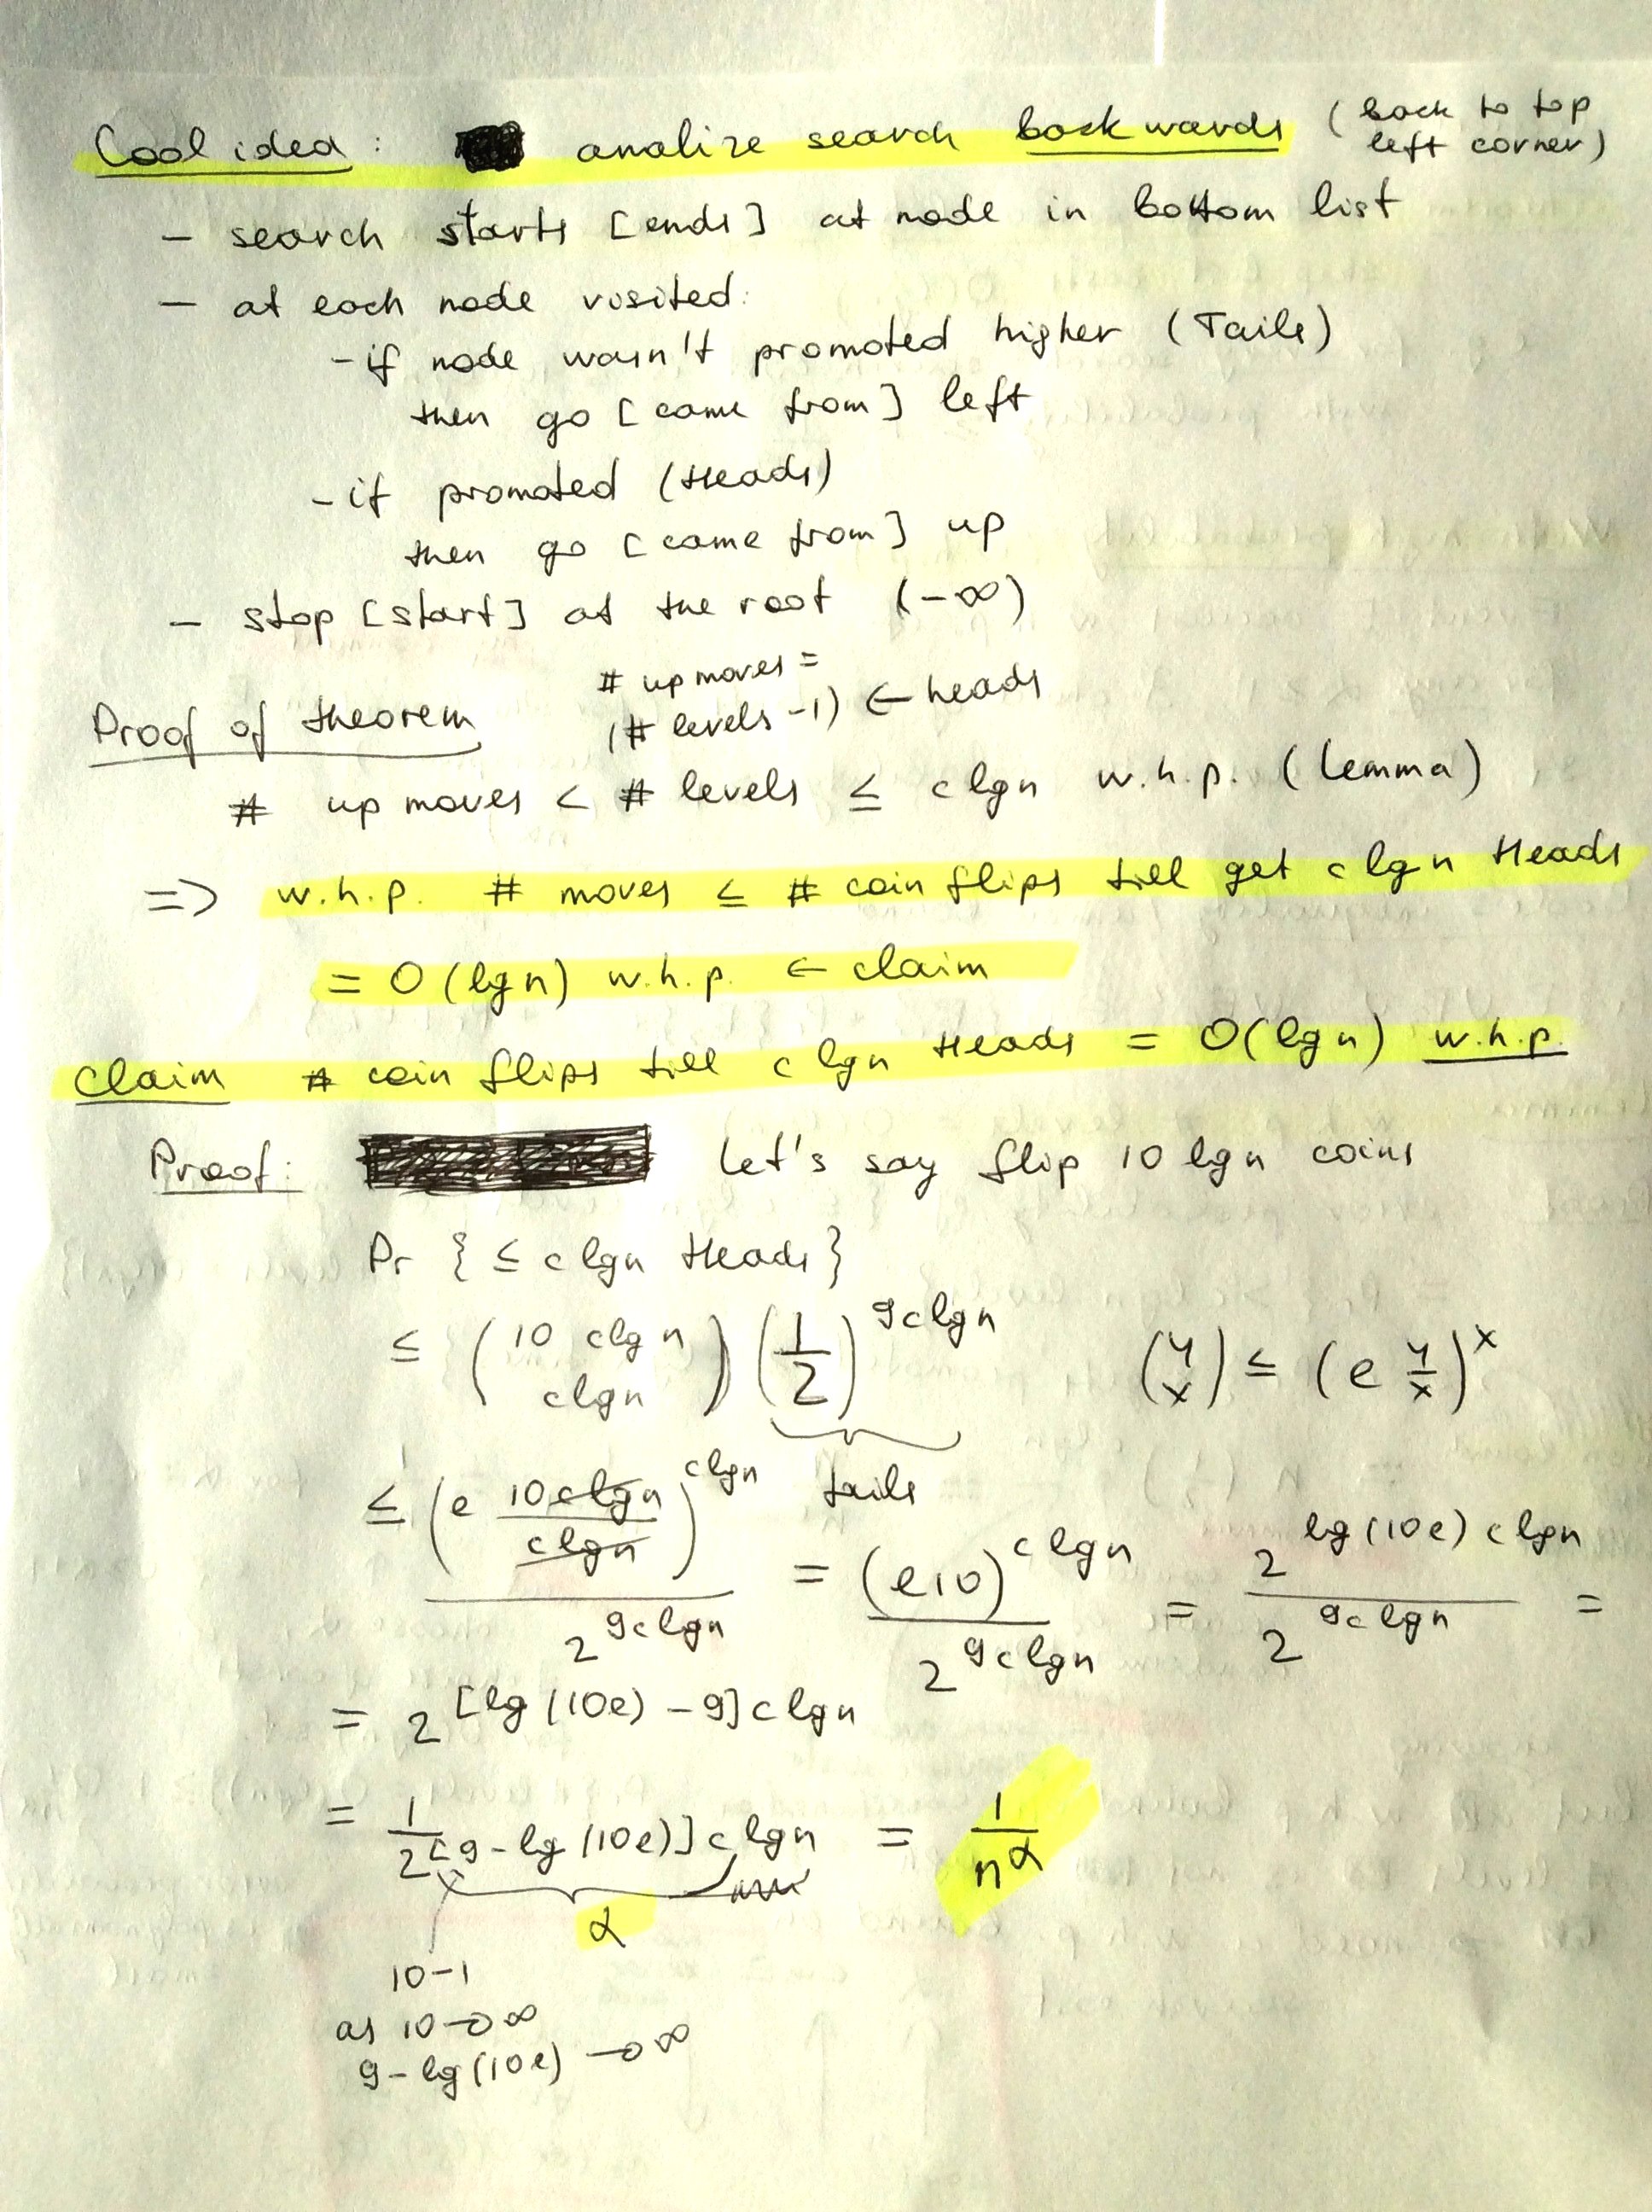 Cool idea: analize search backwards (back to top left corner)
- search starts [ends] at node in bottom list
- at each node visited:
- if node wasn't promoted higher (Tails)
then go [came from] left
- if promoted (Heads)
then go [came from] up
- stop [start] at the root (-∞)
# up moves =
(# levels -1) ← heads
Proof of theorem
# up moves < # levels ≤ c lgn w.h.p. (Lemma)
=> w.h.p. # moves ≤ # coin flips till get c lgn Heads
= O(lgn) w.h.p. ← claim
Claim # coin flips till c lgn Heads = O(lgn) w.h.p.
Proof: Let's say flip 10 lgn coins
Pr {≤ c lgn Heads}
≤ (10 clgn / clgn) (1/2)^9clgn (y / x) ≤ (e y/x)^x
tails
≤ (e 10clgn/clgn)^clgn / 2^9clgn = (e10)^clgn / 2^9clgn = 2^lg(10e)clgn / 2^9clgn =
= 2^[lg(10e) - 9]clgn
= 1/2^[9-lg(10e)]clgn = 1/n^α
α
10-1
as 10→∞
9-lg(10e)→∞